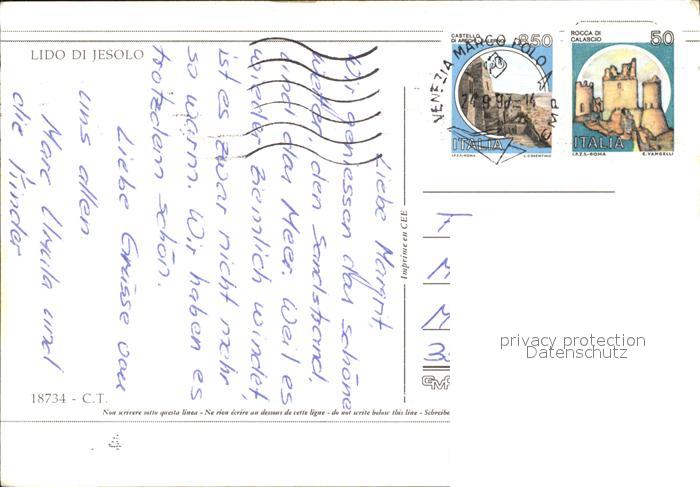 LIDO DI JESOLO
Liebe Margrit,
Wir geniessen das schöne
Wetter, den Sandstrand,
und das Meer. Weil es
wieder ziemlich windet,
ist es zwar nicht mehr
so warm. Wir haben es
trotzdem schön.
Liebe Grüsse von
uns allen
Marc Ursula und
die Kinder
18734 - C.T.
Non scrivere sotto questa linea - Ne rien écrire au dessous de cette ligne - do not write below this line - Schreibe
Imprime en CEE
CASTELLO
DI ARECHI SALERNO
850
ITALIA
I.P.Z.S.-ROMA
ROCCA DI
CALASCIO
50
ITALIA
I.P.Z.S.-ROMA E. VANGELLI
VENEZIA MARCO POLO A.P.
privacy protection
Datenschutz